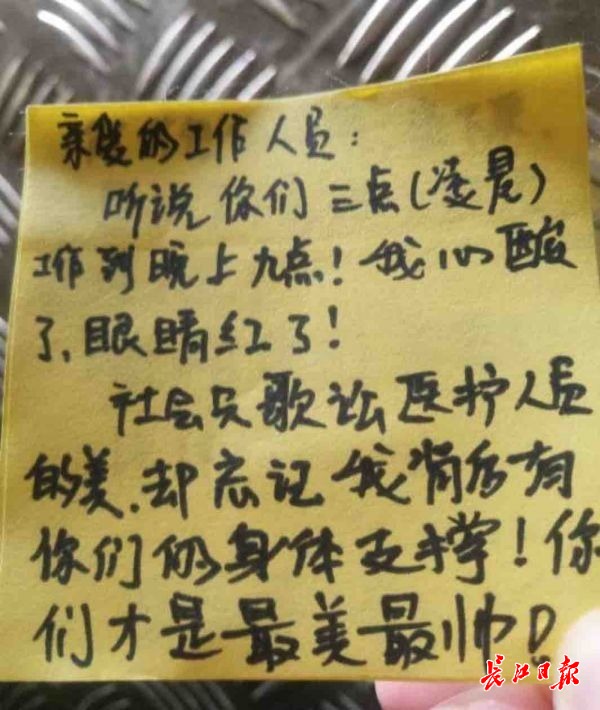 亲爱的工作人员：
听说你们三点（凌晨）
工作到晚上九点！我心酸
了，眼睛红了！
社会只歌讼医护人员
的美，却忘记我背后有
你们的身体支撑！你
们才是最美最帅！
长江日报